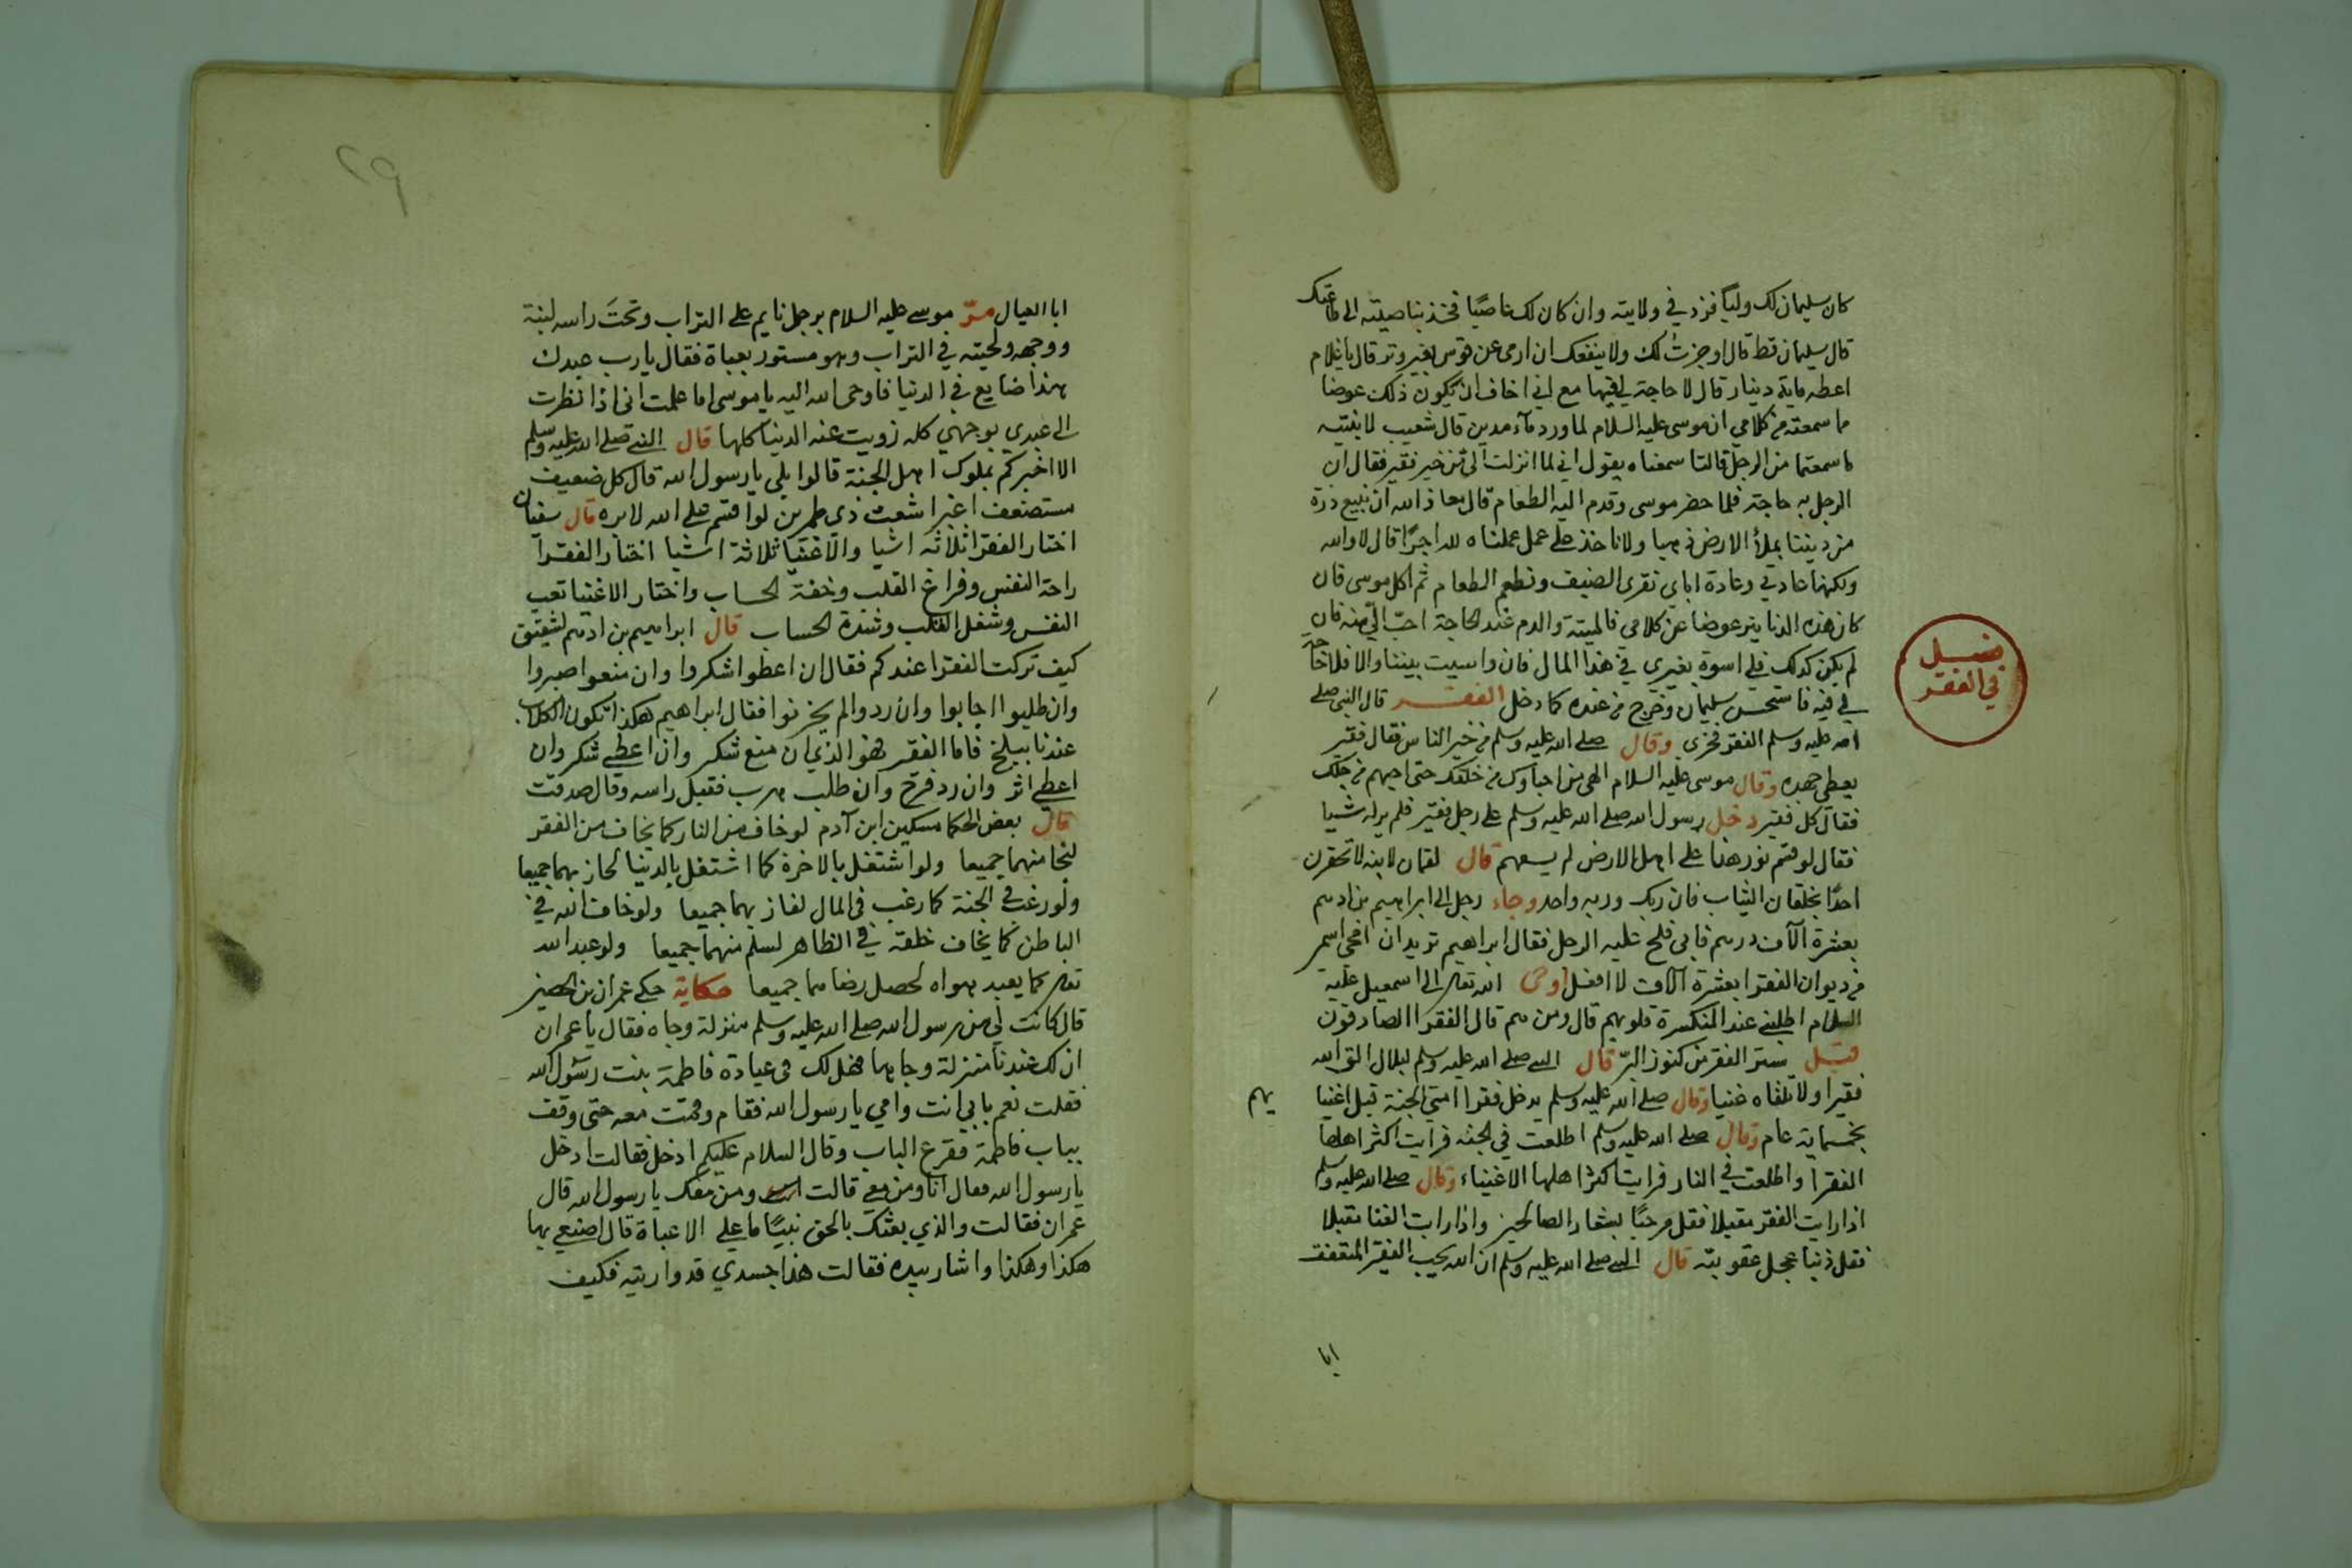 كان سليمان لك وليا فزد في ولايته وان كان لك عاصيا فخذ بناصيته الى طاعتك
قال سليمان قط قال اوجزت لك ولا ينفعك ان ارمي عن قوس بغير وتر قال يا غلام
اعطه ماية دينار قال لا حاجة لي فيها مع اني اخاف ان يكون ذلك عوضا
ما سمعته من كلامي ان موسى عليه السلام لما ورد مآء مدين قال شعيب لابنتيه
ما سمعتما من الرجل قالتا سمعناه يقول اني لما انزلت الي من خير فقير فقال ان
الرجل به حاجة فلما حضر موسى وقدم اليه الطعام قال معاذ الله ان نبيع ذرة
من ديننا بملأ الارض ذهبا ولا ناخذ على عمل عملناه لله اجرًا قال لا والله
ولكنها عادتي وعادة اباي نقري الضيف ونطعم الطعام ثم اكل موسى فان
كان هذه الدنانير عوضا عن كلامي فالميتة والدم عند الحاجة احبّ اليّ منه فان
لم يكن كذلك فلي اسوة بغيري في هذا المال فان واسيت بيننا والا فلا حاجة
لي فيه فاستحسن سليمان وخرج من عنده كما دخل الفقر قال النبي صلى
الله عليه وسلم الفقر فخري وقال صلى الله عليه وسلم من خير الناس فقال فقير
يعطي جهده وقال موسى عليه السلام الهي من احباؤك من خلقك حتى احبهم من اجلك
فقال كل فقير دخل رسول الله صلى الله عليه وسلم على رجل فقير فلم ير له شيا
فقال لو قسم نور هذا على اهل الارض لم يسعهم قال لقمان لابنه لا تحقرن
احدًا بخلقان الثياب فان ربك وربه واحد وجاء رجل الى ابراهيم بن ادهم
بعشرة الآف درهم فابى فلح عليه الرجل فقال ابراهيم تريد ان امحي اسمي
من ديوان الفقرا بعشرة الاف لا افعل اوحى الله تعالى الى اسمعيل عليه
السلام اطلبني عند المنكسرة قلوبهم قال ومن هم قال الفقرا الصادقون
قيل ستر الفقر من كنوز البرّ قال النبي صلى الله عليه وسلم لبلال الق الله
فقيرا ولا تلقاه غنيا وقال صلى الله عليه وسلم يدخل فقرا امتي الجنة قبل اغنيا
يهم
بخمسماية عام وقال صلى الله عليه وسلم اطلعت في الجنة فرايت اكثر اهلها
الفقرا واطلعت في النار فرايت اكثر اهلها الاغنياء وقال صلى الله عليه وسلم
اذا رايت الفقر مقبلا فقل مرحبًا بشعار الصالحين واذا رايت الغنا مقبلا
فقل ذنبا عجل عقوبته قال النبي صلى الله عليه وسلم ان الله يحب الفقير المتعفف
ابا
فصل
في الفقر
٢٩
ابا العيال مرّ موسى عليه السلام برجل نايم على التراب وتحت راسه لبنة
ووجهه ولحيته في التراب وهو مستور بعباة فقال يا رب عبدك
هذا ضايع في الدنيا فاوحى الله اليه يا موسى اما علمت اني اذا نظرت
الى عبدي بوجهي كله زويت عنه الدنيا كلها قال النبي صلى الله عليه وسلم
الا اخبركم بملوك اهل الجنة قالوا بلى يا رسول الله قال كل ضعيف
مستضعف اغبر اشعث ذي طمرين لو اقسم على الله لابره قال سفيان
اختار الفقرا ثلاثة اشيا والاغنيا ثلاثة اشيا اختار الفقرا
راحة النفس وفراغ القلب وخفة الحساب واختار الاغنيا تعب
النفس وشغل القلب وشدة الحساب قال ابراهيم بن ادهم لشقيق
كيف تركت الفقرا عندكم فقال ان اعطوا شكروا وان منعوا صبروا
وان طلبوا اجابوا وان ردوا لم يحزنوا فقال ابراهيم هكذا تكون الكلاب
عندنا ببلخ فاما الفقير فهو الذي ان منع شكر وان اعطي شكر وان
اعطي اثر وان رد فرح وان طلب هرب فقبل راسه وقال صدقت
قال بعض الحكما مسكين ابن آدم لو خاف من النار كما يخاف من الفقر
لنجا منهما جميعا ولو اشتغل بالاخرة كما اشتغل بالدنيا لحاز بهما جميعا
ولو رغب في الجنة كما رغب في المال لفاز بهما جميعا ولو خاف الله في
الباطن كما يخاف خلقه في الظاهر لسلم منهما جميعا ولو عبد الله
تعالى كما يعبد هواه لحصل رضاهما جميعا حكاية حكي عمران بن الحصين
قال كانت لي من رسول الله صلى الله عليه وسلم منزلة وجاه فقال يا عمران
ان لك عندنا منزلة وجاها فهل لك في عيادة فاطمة بنت رسول الله
فقلت نعم بابي انت وامي يا رسول الله فقام وقمت معه حتى وقف
بباب فاطمة فقرع الباب وقال السلام عليكم ادخل فقالت ادخل
يا رسول الله فقال انا ومن معي قالت ومن معك يا رسول الله قال
عمران فقالت والذي بعثك بالحق نبيًا ما علي الا عباة قال اصنعي بها
هكذا وهكذا واشار بيده فقالت هذا جسدي قد واريته فكيف